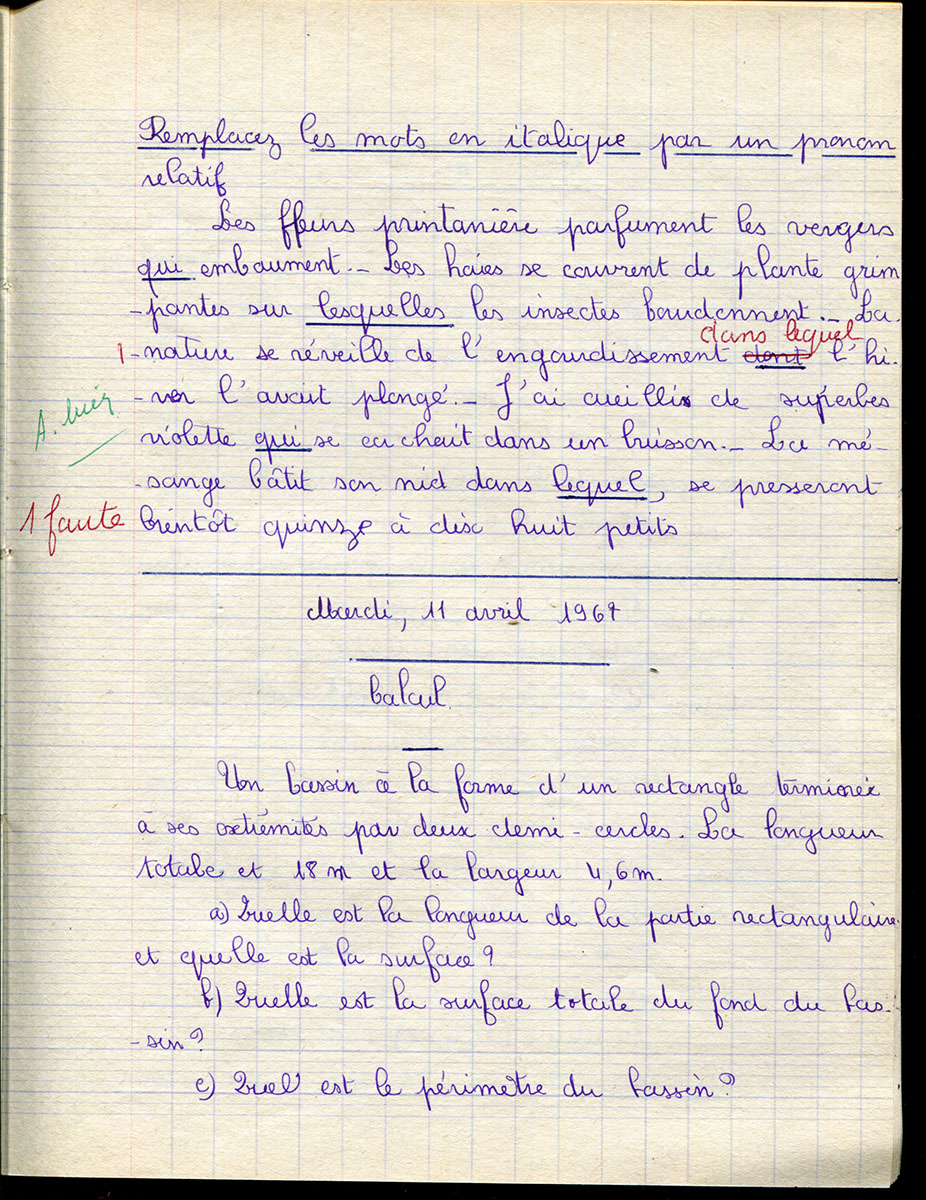 Remplacez les mots en italique par un pronom
relatif
Les fleurs printanière parfument les vergers
qui embaument. - Les haies se couvrent de plante grim
-pantes sur lesquelles les insectes bourdonnent. - La
dans lequel
1 -nature se réveille de l'engourdissement dont l'hi-
-ver l'avait plongé. - J'ai cueillis de superbes
A. bien
violette qui se cachait dans un buisson. - La mé-
-sange bâtit son nid dans lequel, se presseront
1 faute bientôt quinze à dix huit petits
Mardi, 11 avril 1967
Calcul
Un bassin à la forme d'un rectangle terminée
à ses extrémités par deux demi-cercles. La longueur
totale et 18 m et la largeur 4,6 m.
a) Quelle est la longueur de la partie rectangulaire
et quelle est la surface ?
b) Quelle est la surface totale du fond du bas-
-sin ?
c) Quel est le périmètre du bassin ?